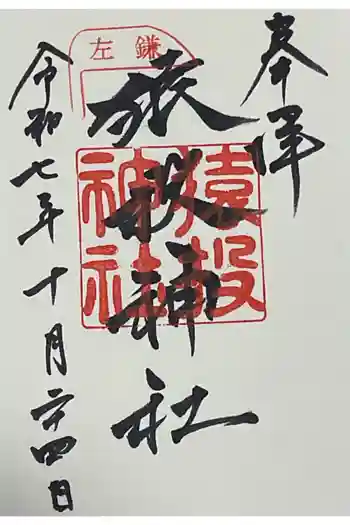 奉拝
左鎌
猿投神社
猿投
神社
令和七年十月二十四日